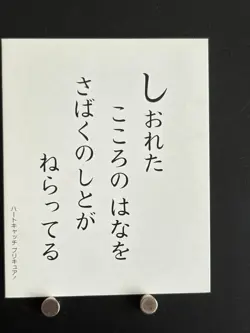 しおれた
こころの はなを
さばくのしとが
ねらってる
ハートキャッチプリキュア！